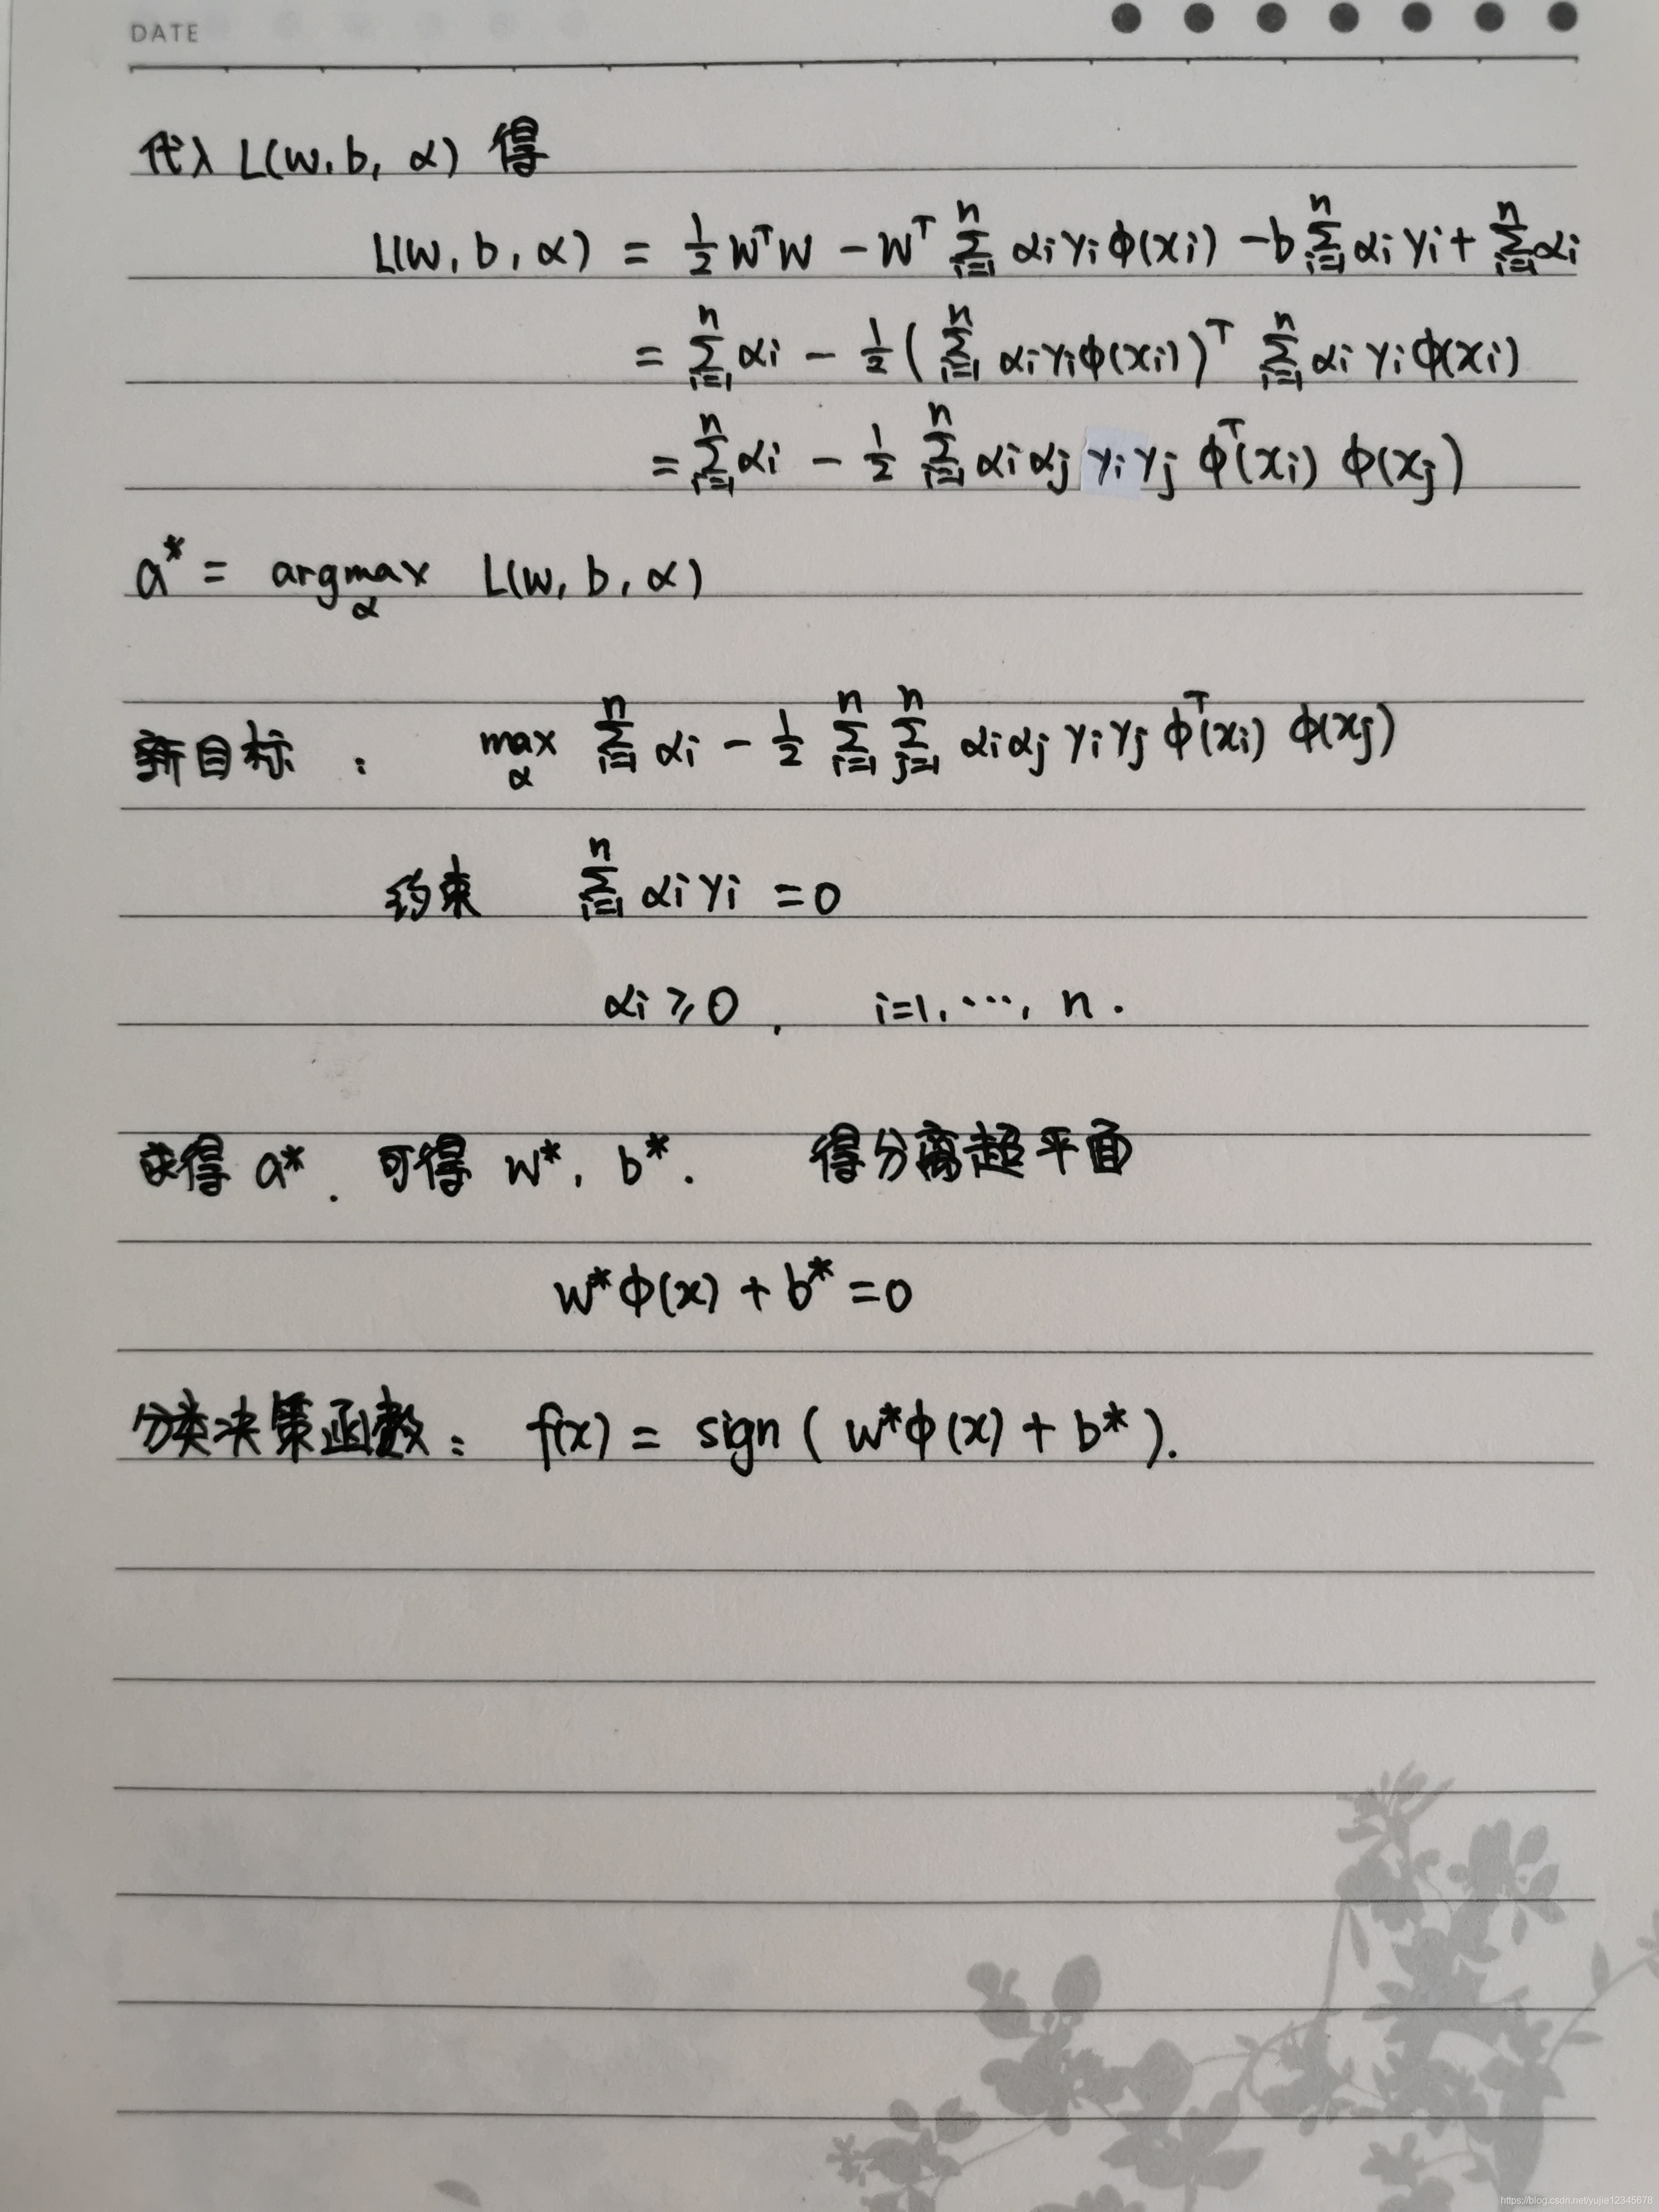 DATE
代入 L(w, b, α) 得
L(w, b, α) = 1/2 wᵀw − wᵀ Σⁿᵢ₌₁ αᵢyᵢφ(xᵢ) − b Σⁿᵢ₌₁ αᵢyᵢ + Σⁿᵢ₌₁ αᵢ
= Σⁿᵢ₌₁ αᵢ − 1/2 ( Σⁿᵢ₌₁ αᵢyᵢφ(xᵢ) )ᵀ Σⁿᵢ₌₁ αᵢyᵢφ(xᵢ)
= Σⁿᵢ₌₁ αᵢ − 1/2 Σⁿᵢ₌₁ αᵢαⱼ yᵢyⱼ φᵀ(xᵢ) φ(xⱼ)
a* = argmax_α L(w, b, α)
新目标 : max_α Σⁿᵢ₌₁ αᵢ − 1/2 Σⁿᵢ₌₁ Σⁿⱼ₌₁ αᵢαⱼ yᵢyⱼ φᵀ(xᵢ) φ(xⱼ)
约束 Σⁿᵢ₌₁ αᵢyᵢ = 0
αᵢ ⩾ 0 , i=1, ⋯, n .
求得 a* . 可得 w*, b* . 得分离超平面
w*φ(x) + b* = 0
分类决策函数: f(x) = sign ( w*φ(x) + b* ).
https://blog.csdn.net/yujie12345678